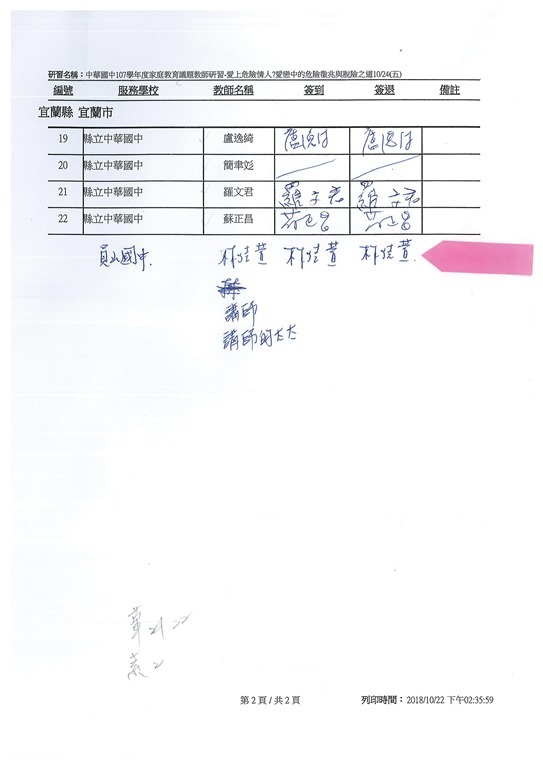 研習名稱：中華國中107學年度家庭教育議題教師研習-愛上危險情人?愛戀中的危險徵兆與脫險之道10/24(五)
編號 服務學校 教師名稱 簽到 簽退 備註
宜蘭縣 宜蘭市
19 縣立中華國中 盧逸綺
20 縣立中華國中 簡聿彣
21 縣立中華國中 羅文君 羅文君 羅文君
22 縣立中華國中 蘇正昌
員山國中
講師
講師的太太
21 22
2
第 2 頁 / 共 2 頁 列印時間：2018/10/22 下午02:35:59